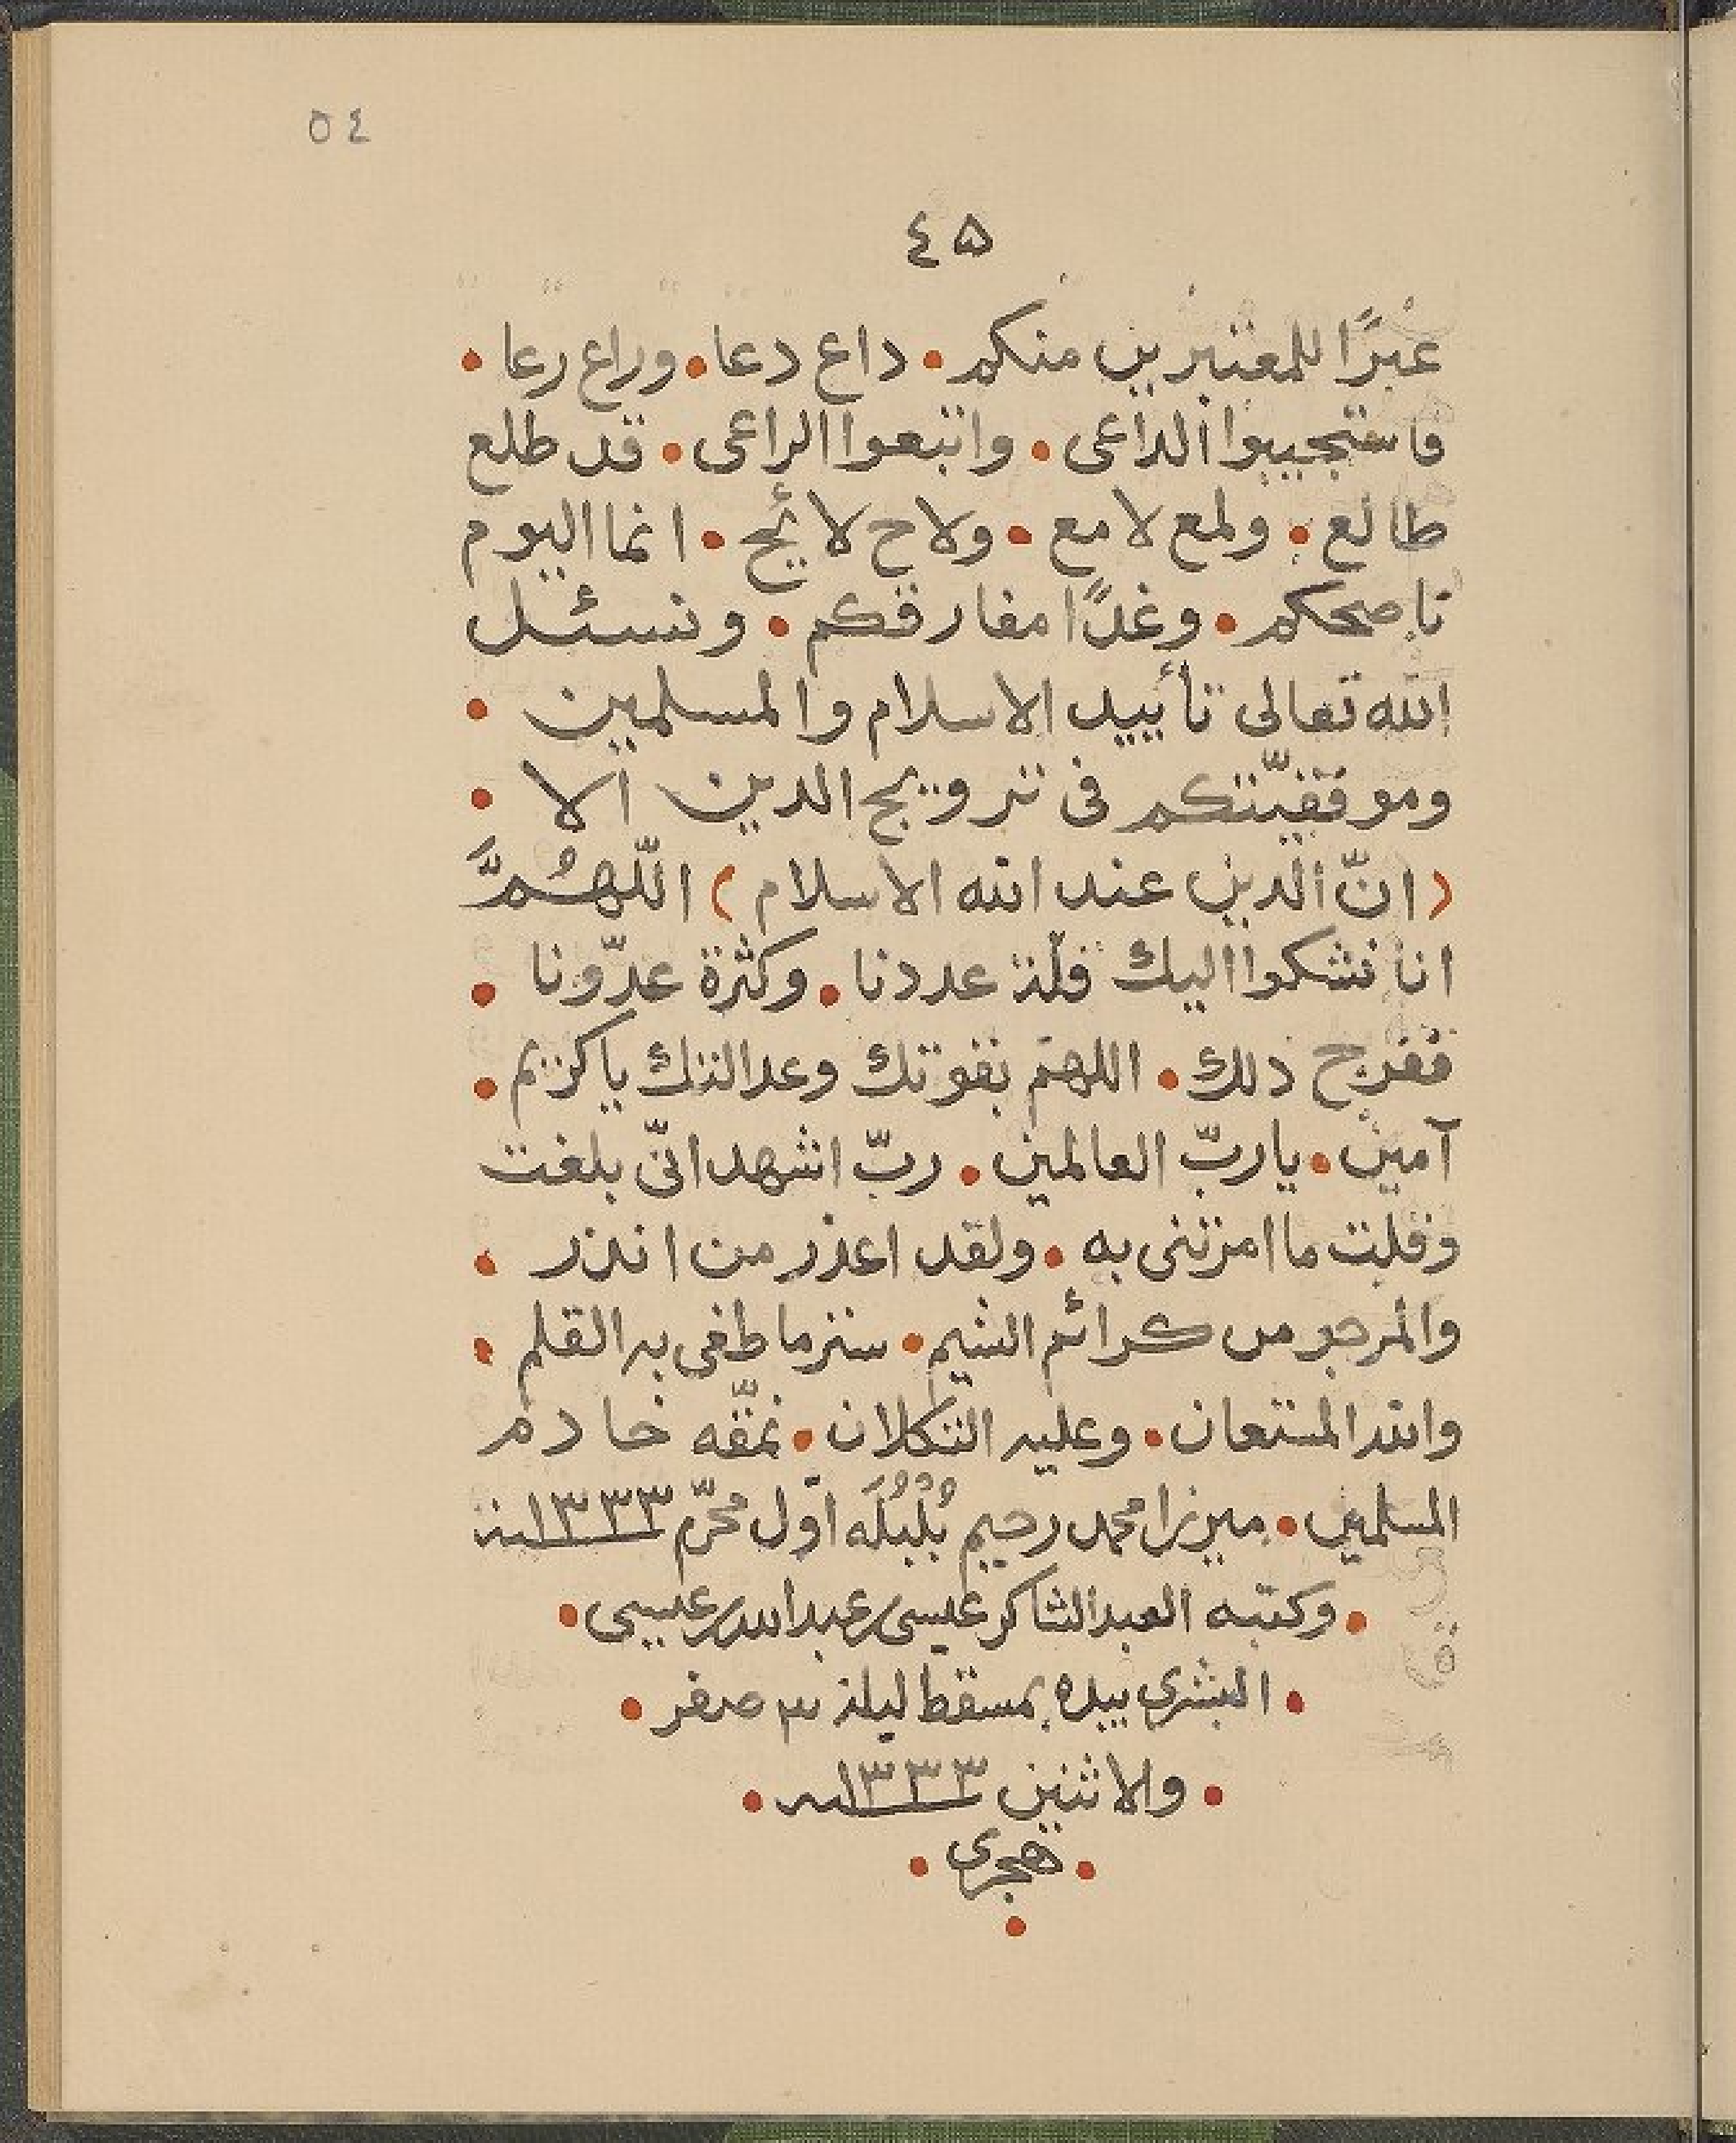 ٥٤
٤٥
عبرًا للمعتبرين منكم • داع دعا • وراع رعا •
فاستجيبوا الداعى • واتبعوا الراعى • قد طلع
طالع • ولمع لامع • ولاح لائح • انما اليوم
ناصحكم • وغدًا مفارقكم • ونسئل
الله تعالى تأييد الاسلام والمسلمين •
وموفقيّتكم فى ترويج الدين الا •
(انّ الدين عند الله الاسلام) اللّهُمَّ
انا نشكوا اليك قلّة عددنا • وكثرة عدّونا •
ففرج ذلك • اللهمّ بقوتك وعدالتك ياكريم •
آمين • ياربّ العالمين • ربّ اشهد انّى بلغت
وقلت ما امرتنى به • ولقد اعذر من انذر •
والمرجو من كرائم الشيم • ستر ما طغى به القلم •
والله المستعان • وعليه التكلان • نمّقه خادم
المسلمين • ميرزا محمد رحيم بُلْبُلَه اوّل محرّم ١٣٣٣سنة
• وكتبه العبد الشاكر عيسى عبدالله عيسى •
• البشرى بيده بمسقط ليلة ٣ صفر •
• والاثنين ١٣٣٣سنه •
• هجرى •
•